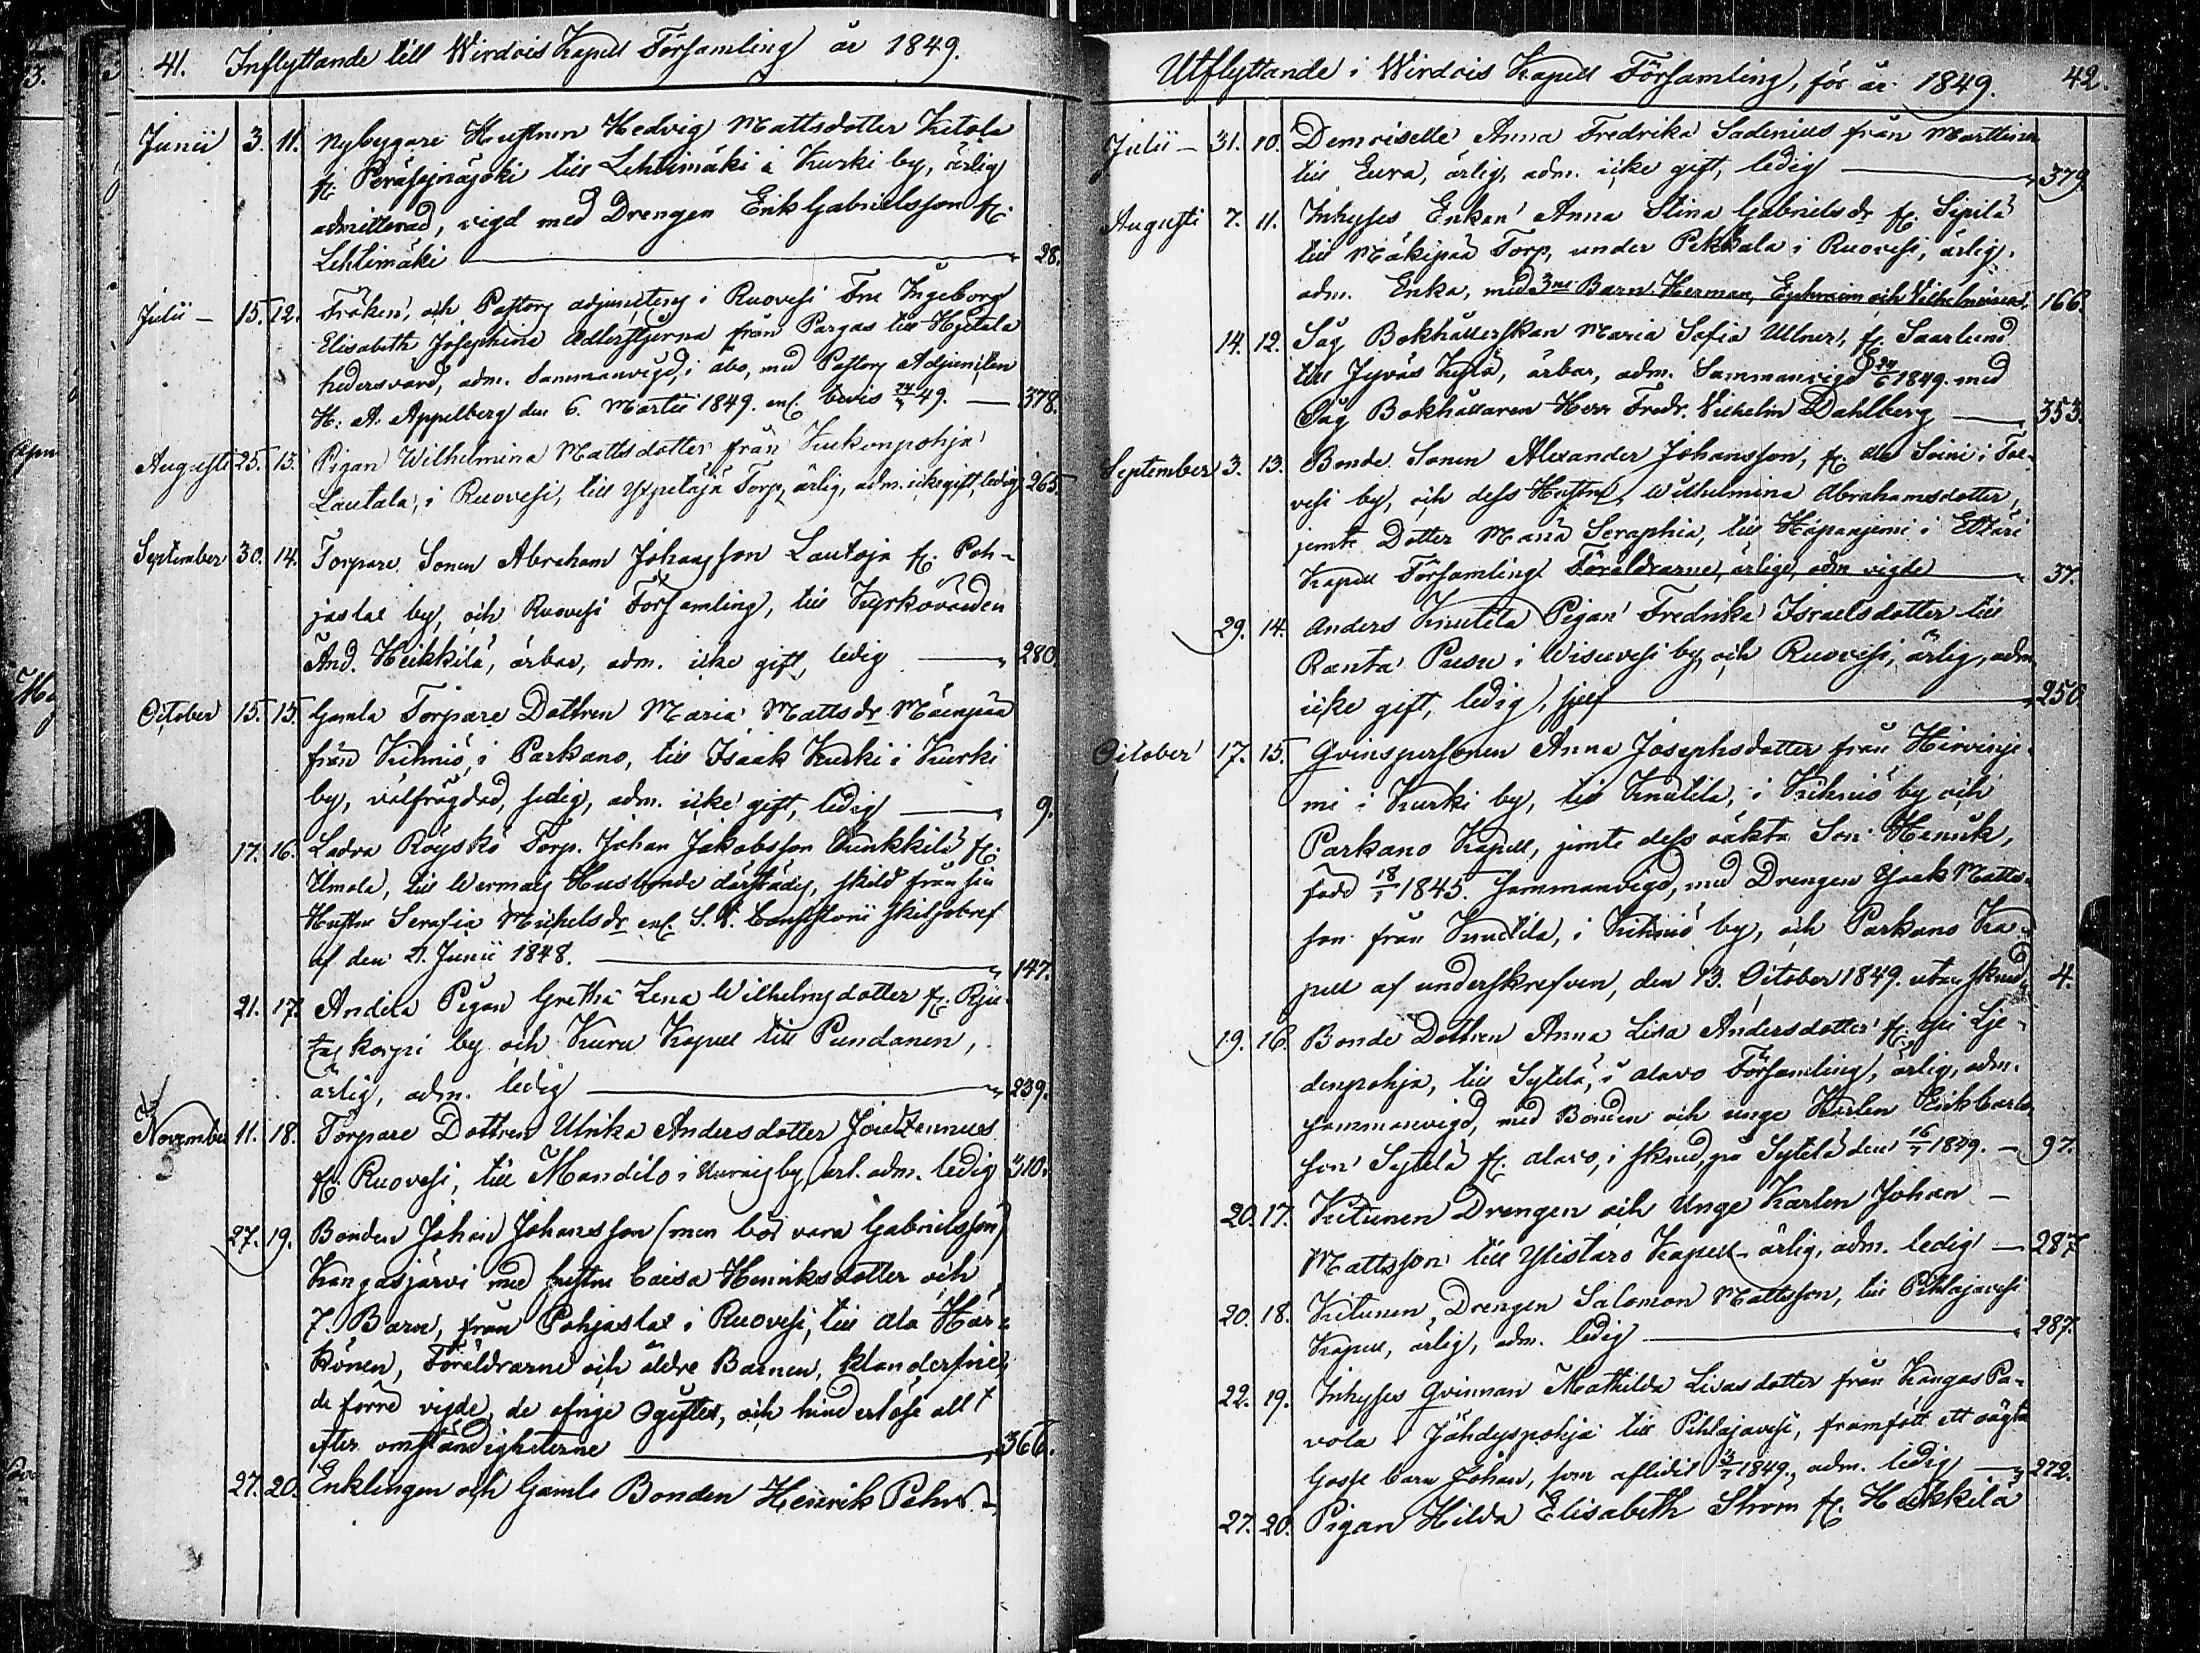 41. Inflyttande till Wirdois Kapell Församling år 1849.
Junii 3. 11. Nybyggare Hustrun Hedvig Mattsdotter Ketola
fr. Peräseinäjoki till Lehtimäki i Kurki by, ärlig
admitterad, vigd med Drengen Erik Gabrielsson fr.
Lehtimäki 28.
Julii 15. 12. Fröken, och Pastors adjunctens i Ruovesi Fru Ingeborg
Elisabeth Josephina Adlerstjerna från Pargas till Hjetala
hedersvärd, adm. Sammanvigd, i åbo, med Pastors Adjuncten
H. A. Appelberg den 6. Martii 1849. enl. bevis 24/3 49. 378.
Augusti 25. 13. Pigan Wilhelmina Mattsdotter från Kukonpohja
Lautala, i Ruovesi, till Yspetäjä Torp, ärlig, adm. icke gift, ledig 265
September 30. 14. Torpare Sonen Abraham Johansson Lautoja fr. Poh-
jaslax by, och Ruovesi Församling, till Kyrkovärden
And. Heikkilä, ärbar, adm. icke gift, ledig 280.
October 15. 15. Gamla Torpare Dottren Maria Mattsdr Mäenpää
från Kihniö, i Parkano, till Isaak Kurki i Kurki
by, välfrägdad, sedig, adm. icke gift, ledig 9.
17. 16. Ladva Röyskö Torp. Johan Jakobsson Kunkkilä fr.
Ulmala, till Wermas Husbonde därstädes, skild från sin
Hustru Serafia Michelsdr enl. Consistorii skiljobref
af den 21. Junii 1848. 147.
21. 17. Andila Pigan Gretha Lena Wilhelmsdotter fr.
korpi by och Kuru Kapell till Pundanen,
ärlig, adm. ledig 239.
November 11. 18. Torpare Dottren Ulrika Andersdotter
fr. Ruovesi, till Mandilo i by, ärl. adm. ledig 310.
27. 19. Bonden Johan Johansson (men bör vara Gabrielsson)
Kangasjärvi med hustru Caisa Henriksdotter och
7. Barn, från Pohjaslax i Ruovesi, till Ala Här-
könen, Föräldrarne och äldre Barnen, klanderfrie,
de förre vigde, de öfrige Ogifter, och hinderlöse allt
efter omständigheterne 366.
27. 20. Enklingen och Gamle Bonden Henrik Pehrs-
Utflyttande i Wirdois Kapell Församling, för år 1849. 42.
Julii 31. 10. Demoiselle Anna Fredrika Sadenius från Marttinen
till Eura, ärlig, adm. icke gift, ledig 379
Augusti 7. 11. Inhyses Enkan Anna Stina Gabrielsdr fr. Sipilä
till Mäkipää Torp, under Pekkala i Ruovesi, ärlig,
adm. Enka, med 3ne Barn Herman, Ephraim och Vilhelmina. 166.
14. 12. Såg Bokhållerskan Maria Sofia Ullner, fr. Saarlund
till Jyväs Kylä, ärbar, adm. Sammanvigd 24/6 1849. med
Såg Bokhållaren Herr Fredr. Vilhelm Dahlberg 353.
September 3. 13. Bonde Sonen Alexander Johansson, fr. Ala Soini i Toi-
vesi by, och dess Hustru, Wilhelmina Abrahamsdotter,
jemte Dotter Maria Seraphia, till Hapanjemi i Etzäri
Kapell Församling Föräldrarne, ärlige, adm. vigde 37.
29. 14. Anders Knutila Pigan Fredrika Israelsdotter till
Ranta Pusu i Wisuvesi by, och Ruovesi, ärlig, adm.
icke gift, ledig, sjelf 250
October 17. 15. Qvinspersonen Anna Josephsdotter från Hirvinje-
mi i Kurki by, till Knutila, i Kihniö by och
Parkano Kapell, jemte dess oäkta Son Henrik,
född 18/1 1845. Sammanvigd, med Drengen Isaak Matts-
son från Knutila, i Kihniö by, och Parkano Ka-
pell af underskrefven, den 13. October 1849. utan skrud, 4.
19. 16. Bonde Dottren Anna Lisa Andersdotter fr. Yli Lje-
denpohja, till Sytelä, i Alavo Församling, ärlig, adm.
sammanvigd, med Bonden och unge Karlen Erik Carls-
son Sytelä fr. Alavo, i skrud, på Sytelä den 16/7 1849. 97.
20. 17. Kitunen Drengen och Unge Karlen Johan
Mattsson till Ylistaro Kapell ärlig, adm. ledig 287
20. 18. Kitunen, Drengen Salomon Mattsson, till Pihlajavesi
Kapell, ärlig, adm. ledig 287.
22. 19. Inhyses Qvinnan Mathilda Lisasdotter från Kangas Pa-
vola i Jähdyspohja till Pihlajavesi, framfött ett oägta
Gosse barn Johan, som aflidit 3/7 1849, adm. ledig 272.
27. 20. Pigan Hilda Elisabeth Ström fr. Heikkilä